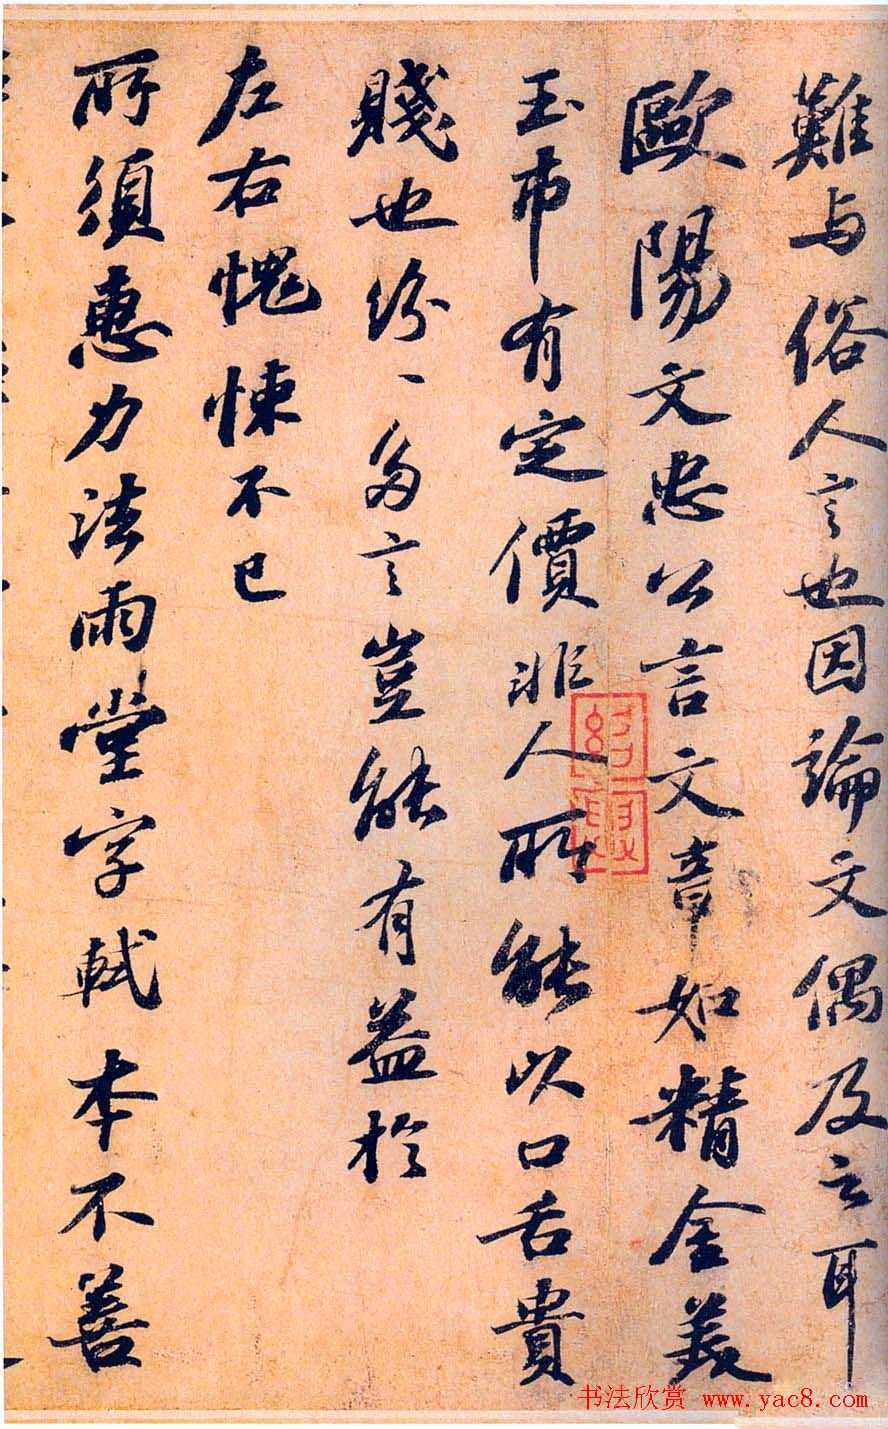 難与俗人言也因論文偶及云耳
歐陽文忠公言文章如精金美
玉市有定價非人所能以口舌貴
賤也紛〻多言豈能有益於
左右愧悚不已
所須惠力法雨堂字軾本不善
书法欣赏 www.yac8.com